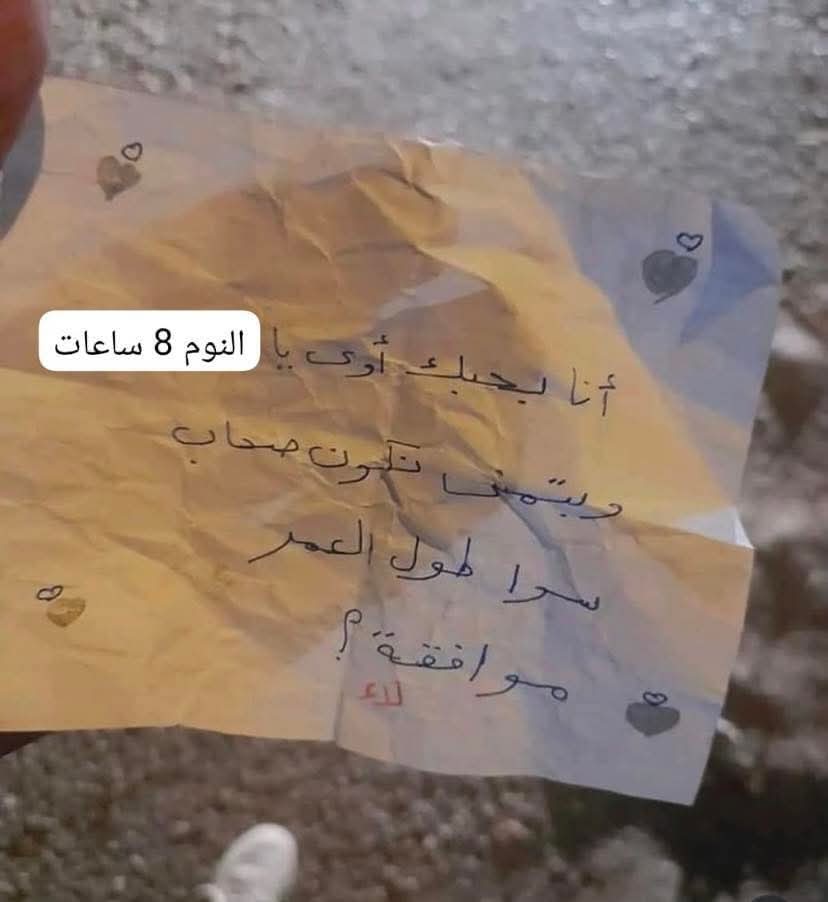 أنا بحبك أوى يا النوم 8 ساعات
وبتمنى نكون صحاب
سوا طول العمر
موافقة؟
لاء